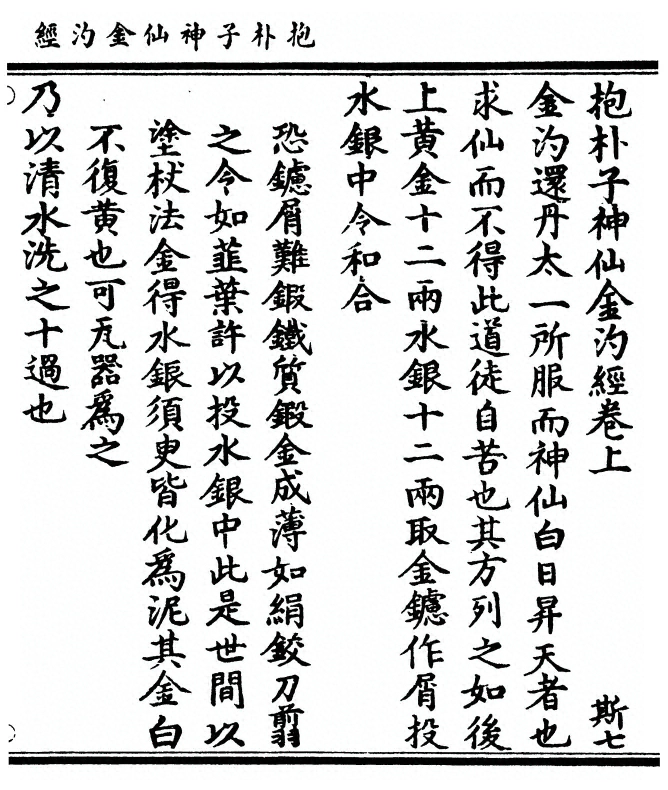 抱朴子神仙金汋經
抱朴子神仙金汋經卷上
斯七
金汋還丹太一所服而神仙白日昇天者也
求仙而不得此道徒自苦也其方列之如後
上黃金十二兩水銀十二兩取金鑢作屑投
水銀中令和合
恐鑢屑難鍛鐵質鍛金成薄如絹鉸刀翦
之令如韮葉許以投水銀中此是世間以
塗杖法金得水銀須臾皆化為泥其金白
不復黃也可瓦器為之
乃以清水洗之十過也